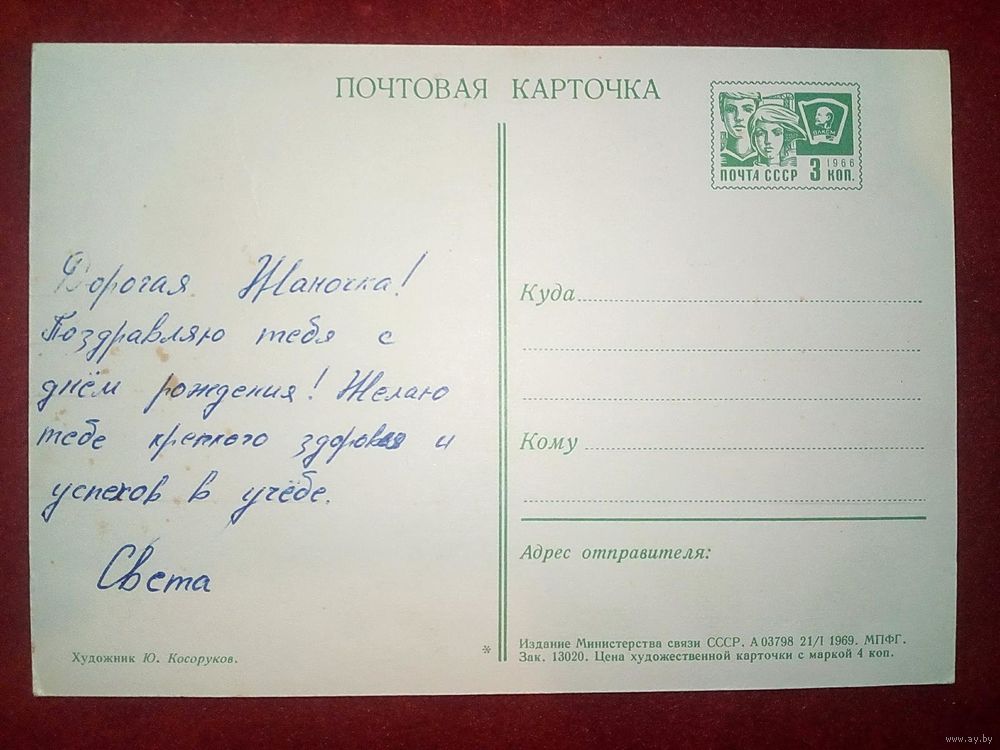 ПОЧТОВАЯ КАРТОЧКА
ВЛКСМ
1966
ПОЧТА СССР 3 КОП.
Дорогая Жаночка!
Поздравляю тебя с
днём рождения! Желаю
тебе крепкого здоровья и
успехов в учёбе.
Света
Художник Ю. Косоруков.
*
Куда
Кому
Адрес отправителя:
Издание Министерства связи СССР. А 03798 21/I 1969. МПФГ.
Зак. 13020. Цена художественной карточки с маркой 4 коп.
www.ay.by